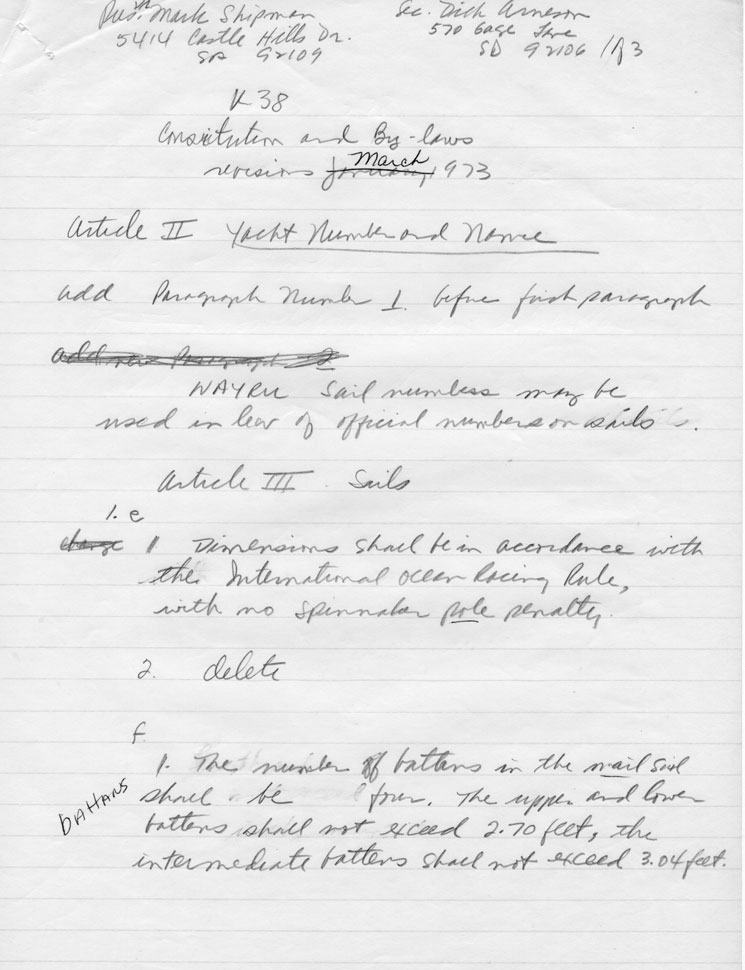 Pres. Mark Shipman
Sec. Dick Arneson
5414 Castle Hills Dr.
570 Gage
SD 92109
SD 92106 1 of 3
K 38
Constitution and By-laws
March
revisions January, 1973
Article II Yacht Number and Name
add Paragraph Number 1. before first paragraph
add new Paragraph 2
NAYRU Sail numbers may be
used in leav of official numbers on sails.
Article III. Sails
1. e
change 1 Dimensions shall be in accordance with
the International Ocean Racing Rule,
with no spinnaker pole penalty.
2. delete
f.
1. The number of battens in the mail sail
shall be four. The upper and lower
battens
battens shall not exceed 2.70 feet, the
intermediate battens shall not exceed 3.04 feet.